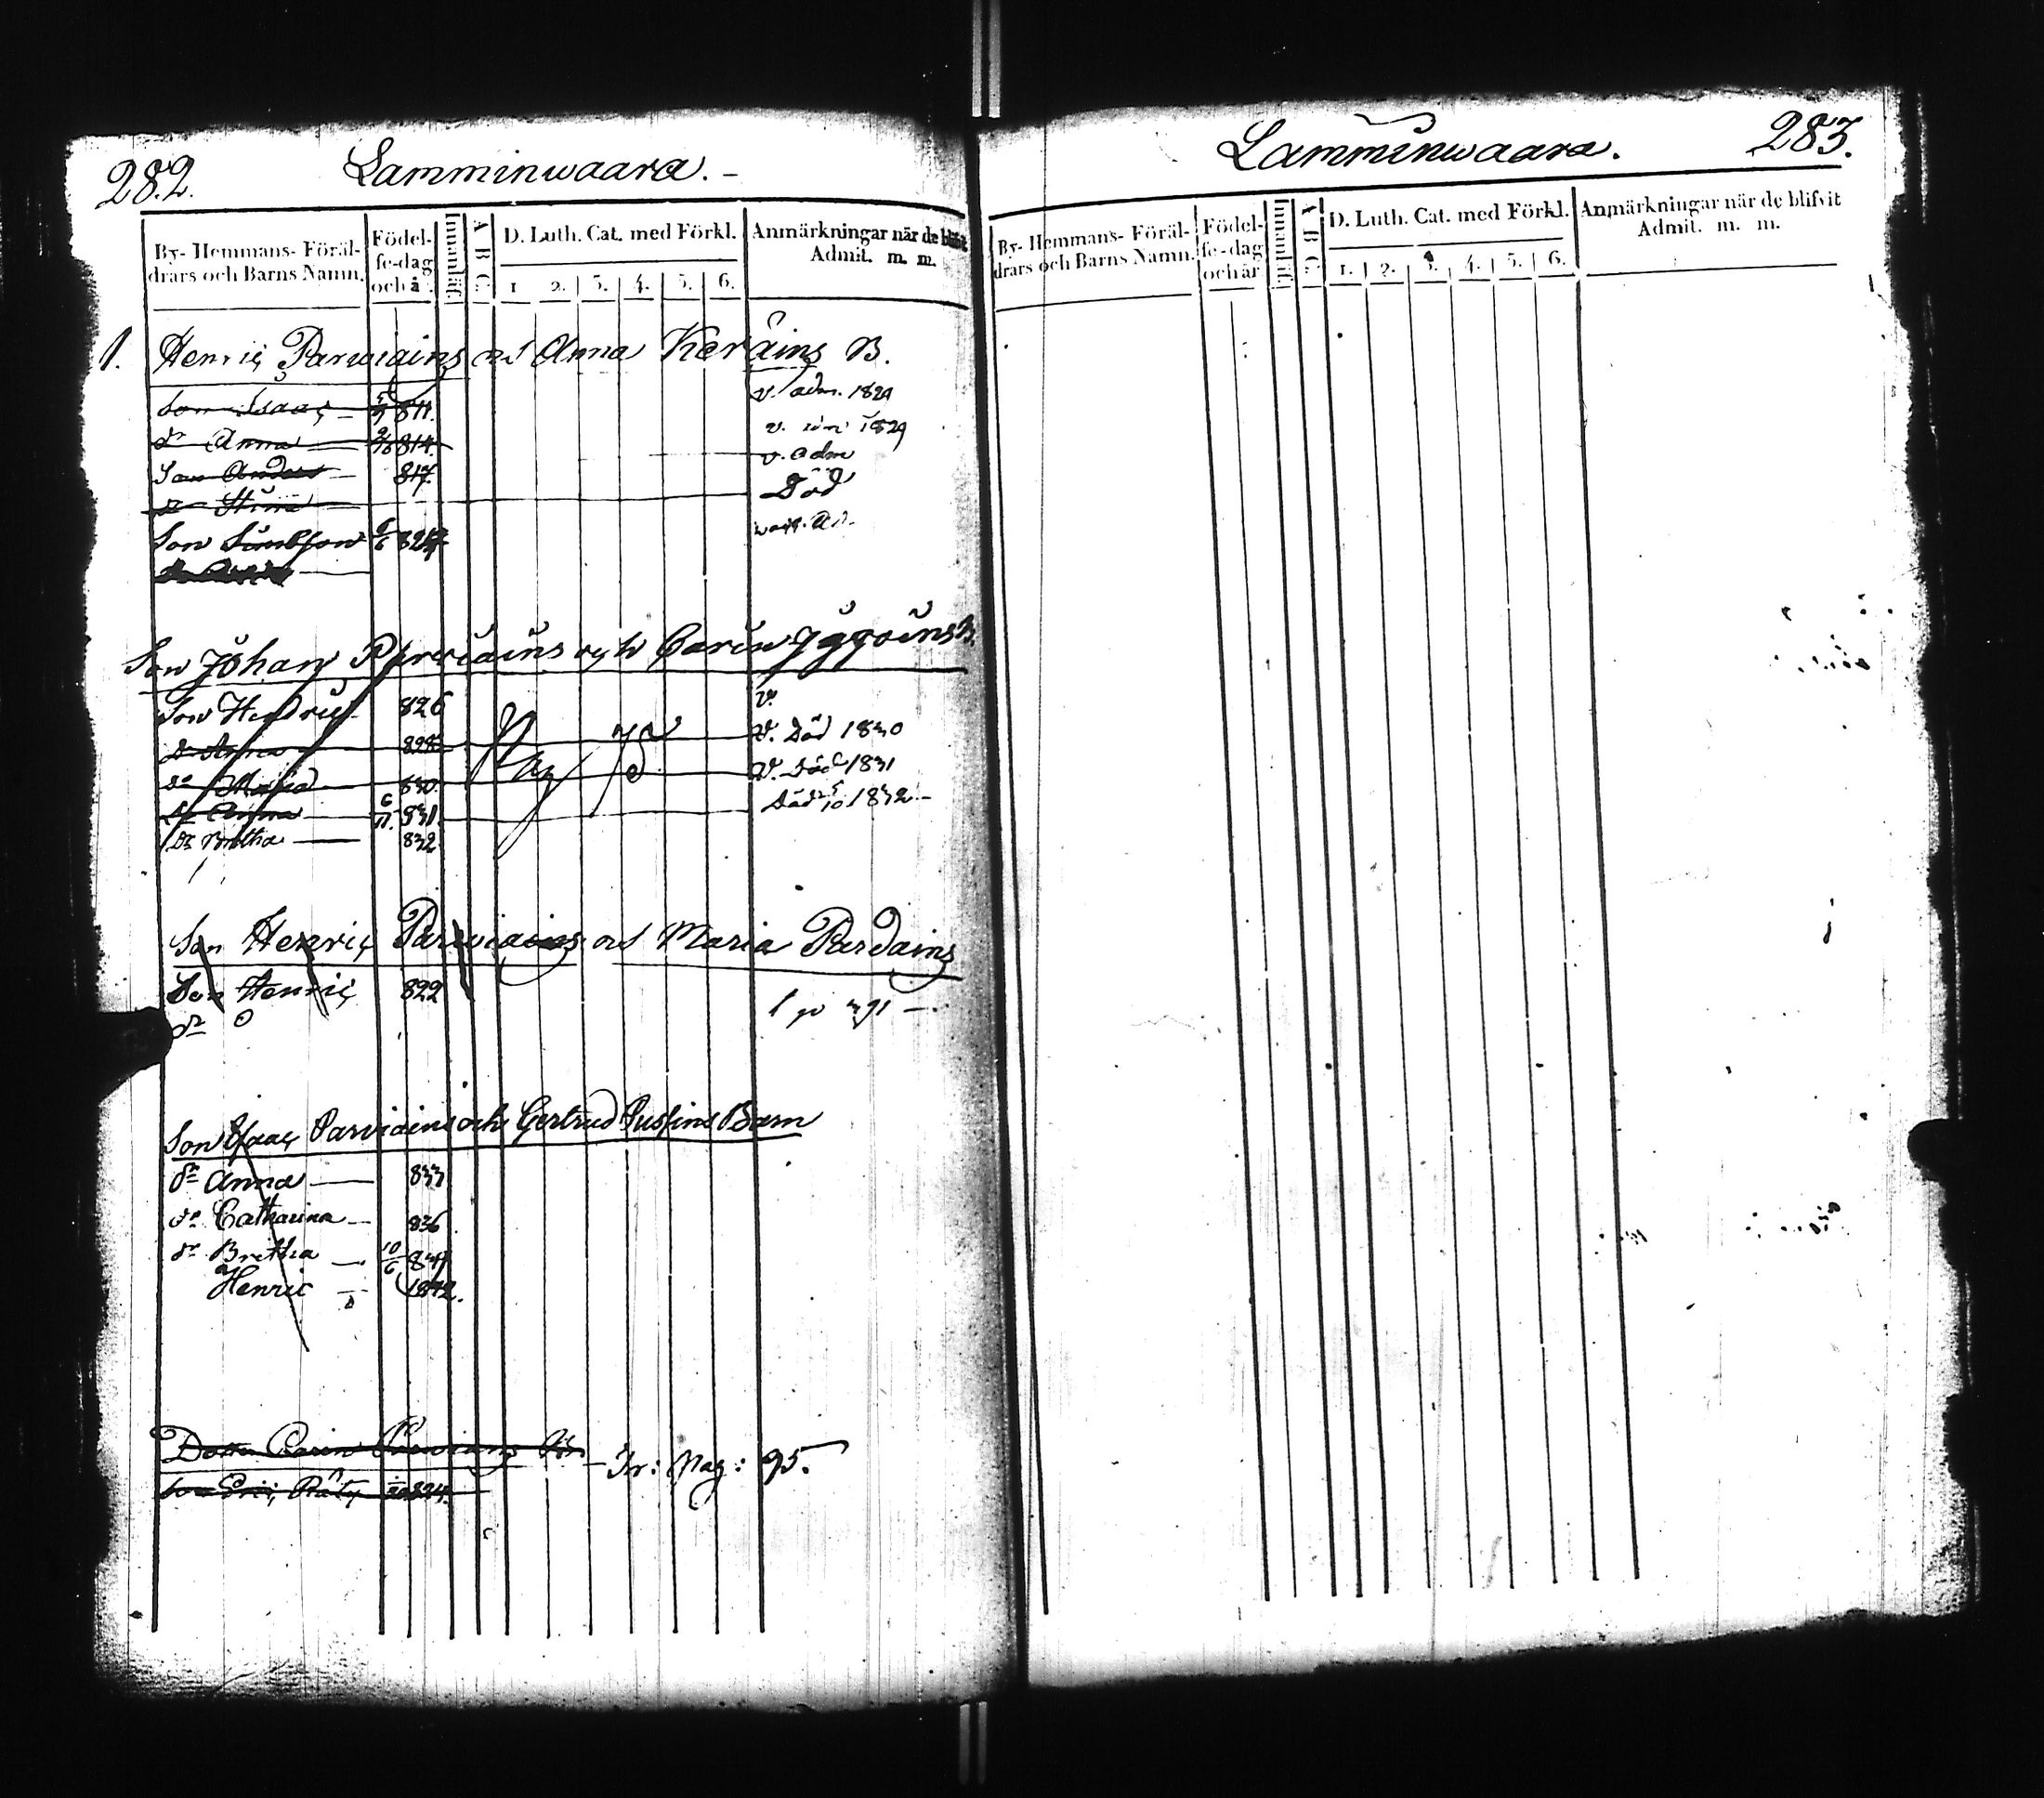 282.
Lamminwaara.
By- Hemmans- Föräl-
drars och Barns Namn.
Födel-
se-dag
och å .
Innanläs.
A B C.
D. Luth. Cat. med Förkl.
1 2. 3. 4. 5. 6.
Anmärkningar när de blifvit
Admit. m. m.
1. Henric Parwiains och Anna Keräins B.
Son Isaac 811. v. adm. 1829
dr Anna 814. v. adm 1829
Son Anders 817. v. adm
Död
Son 6/6
Son Johan Parviains och Carin B.
Son Hendric 826 v.
dr Anna 828 V. Död 1830
dr Maria 830 V. Död 1831
dr Anna 6/11. 831. Död 1832 -
Dr Bretha 832
Pag 75
Son Henric Parwiains och Maria Pardains
Son Henric 822
dr
Son Isaac Parviains och Gertrud Pussins Barn
dr Anna 833
dr Catharina 836
dr Bretha 10/6
Henric 1842.
Dotter Carin Parwiains
Son Eric Räty 824.
Tr: Pag: 95.
Lamminwaara.
283.
By- Hemmans- Föräl-
drars och Barns Namn.
Födel-
se-dag
och år
Innanläs.
A B C.
D. Luth. Cat. med Förkl.
1. 2. 3. 4. 5. 6.
Anmärkningar när de blifvit
Admit. m. m.